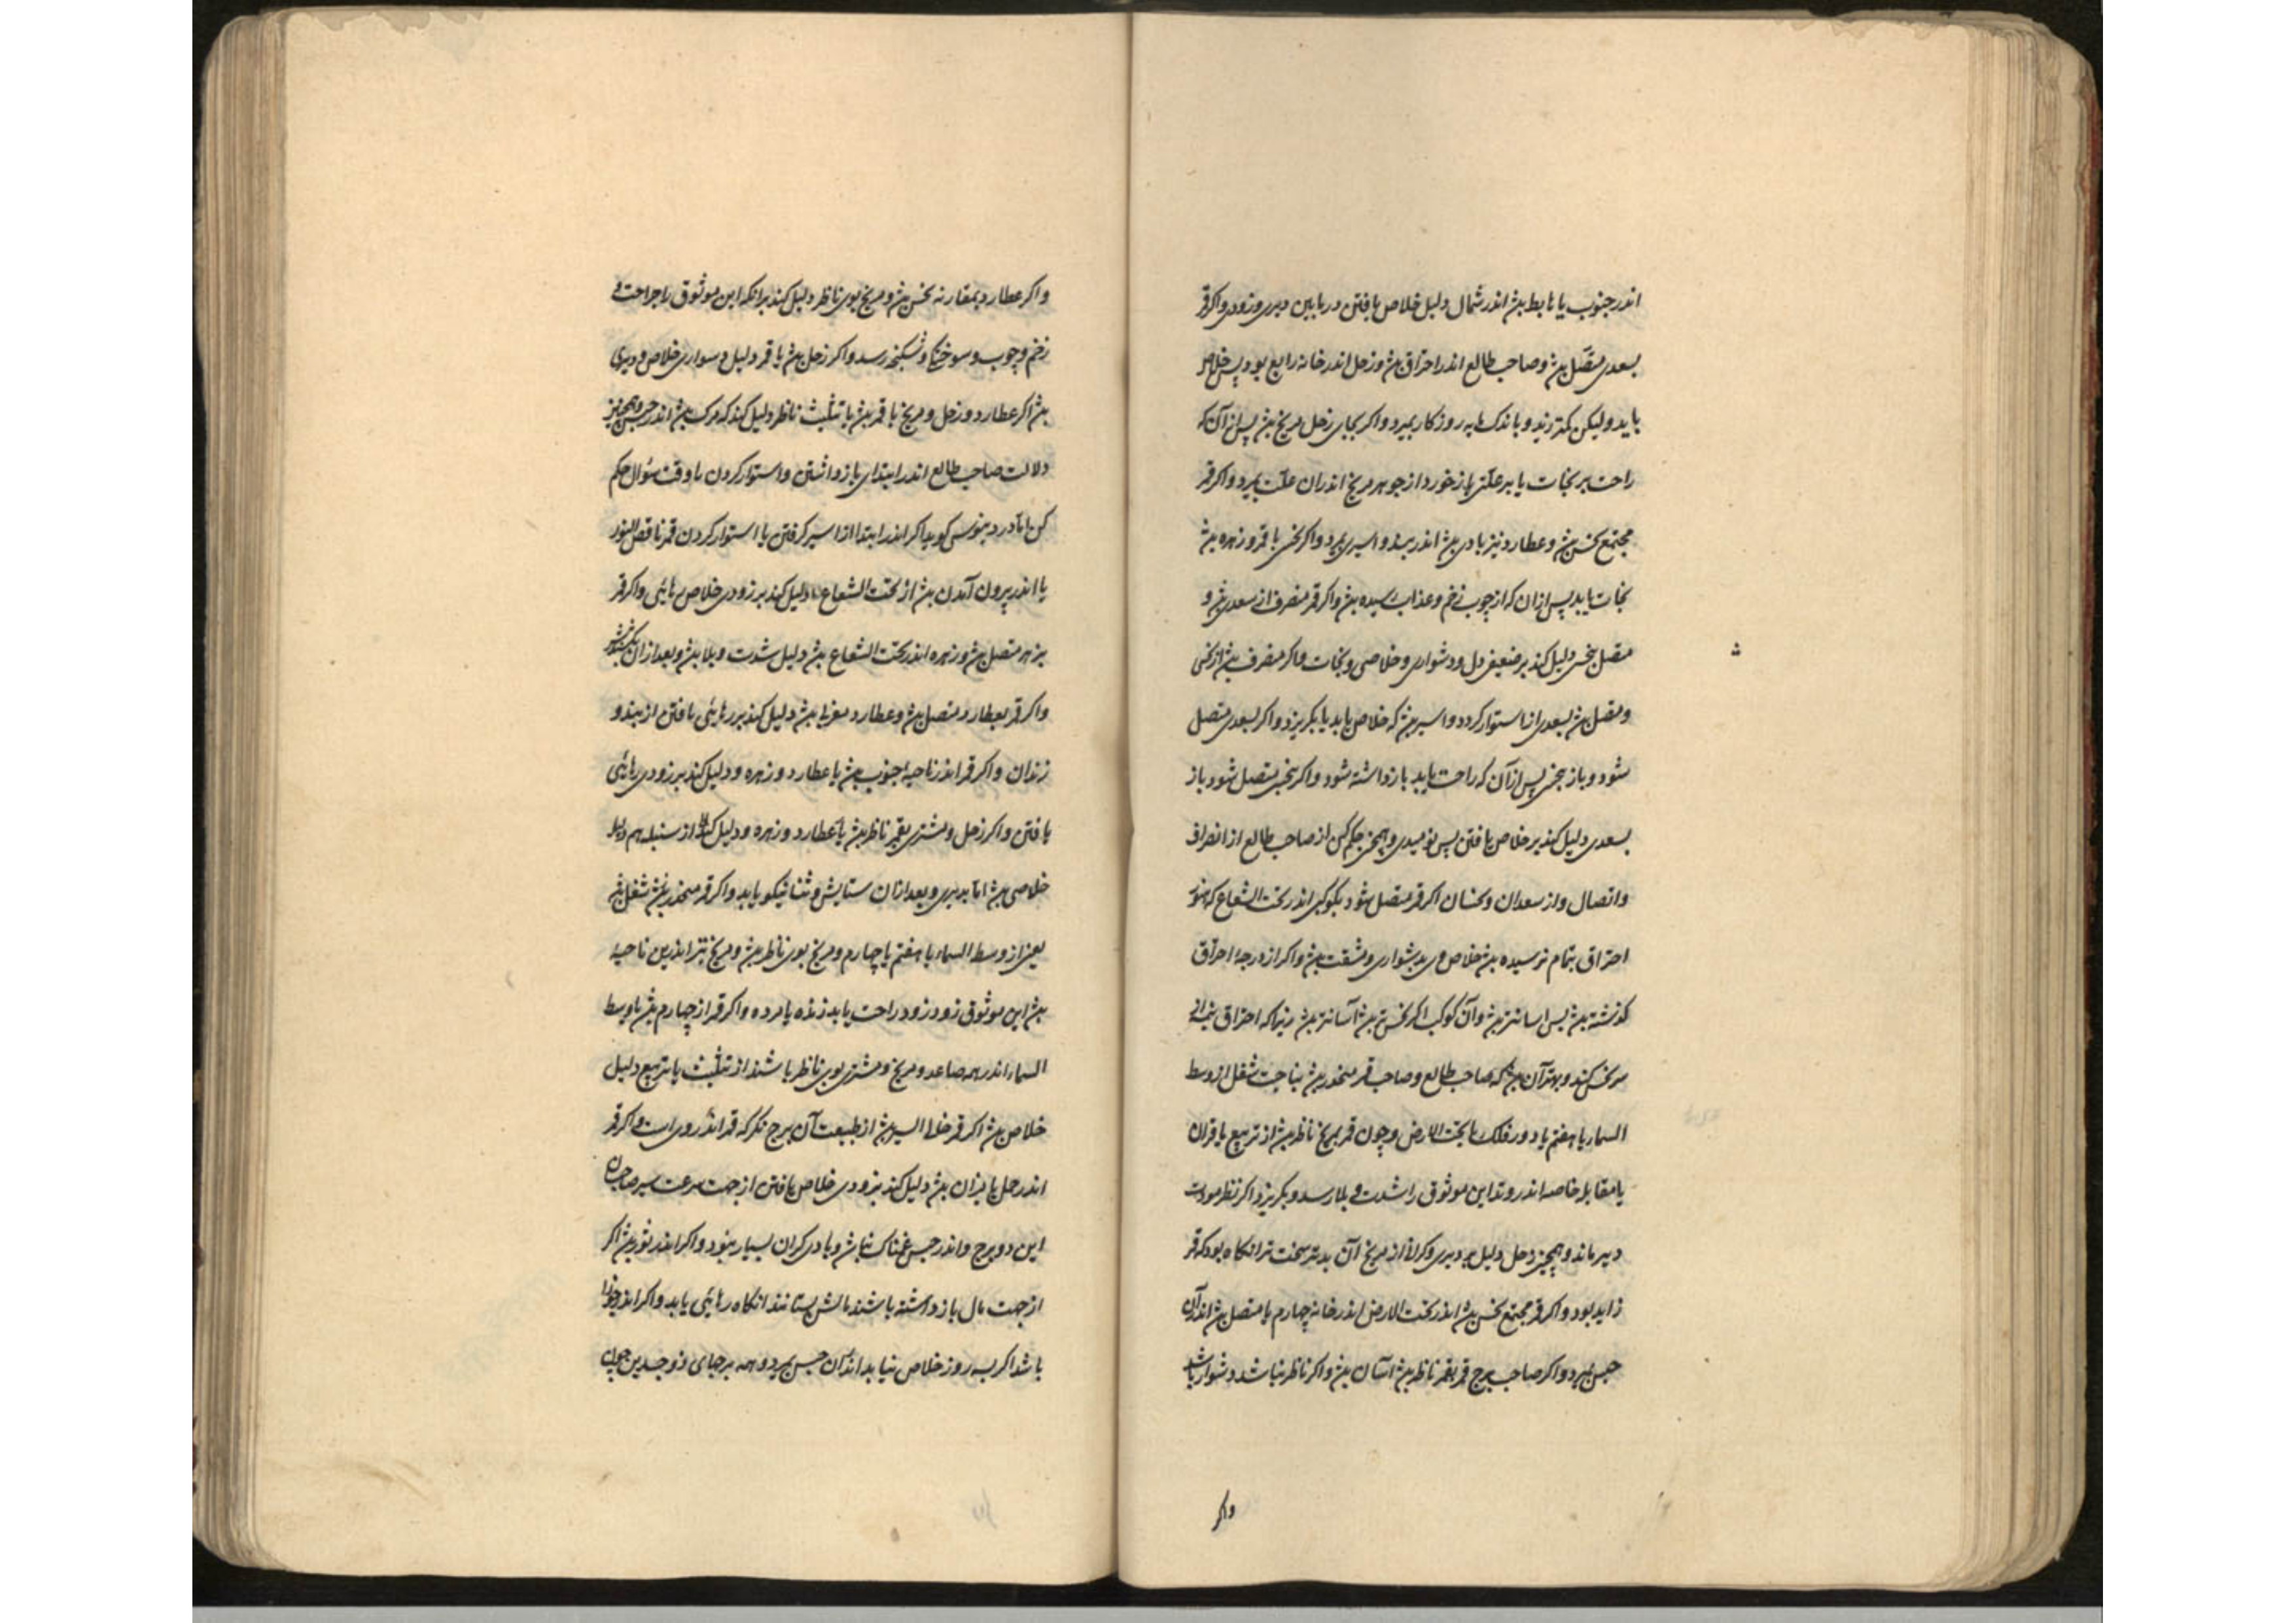 اندر جنوب یا هابط بیژ اندر شمال دلیل خلاص یافتن در یابین دیری و زودی واکر قمر
بسعدی متصل بیژ وصاحب طالع اندر احتراق بیژ وزحل اندر خانه رابع بود پس خلاص
یابد ولیکن کمتر زید وباندک مایه روزکار بمیرد واکر بجای زحل مریخ بیژ پس از آن که
راحت بر نجات یا بر علتی باز خورد از جوهر مریخ اندران علت بمیرد واکر قمر
مجتمع نحس بیژ وعطارد نیز با وی بیژ اندر بند واسیری بمیرد واکر نحس با قمر وزهره بیژ
نجات یابد پس ازان که از چوب زخم وعذاب رسیده بیژ واکر قمر منصرف از سعدی بیژ و
متصل بنحس دلیل کند بر ضعیفی دل ودشواری وخلاصی ونجات واکر منصرف بیژ از نحس
ومتصل بیژ بسعدی از استوار کردد واسیر بیژ که خلاص یابد یا بکریزد واکر بسعدی متصل
شود وباز بنحس پس از آن که راحت یابد بازداشته شود واکر بنحس متصل شود باز
بسعدی دلیل کند بر خلاص یافتن پس نومیدی وهمچنین حکم کن از صاحب طالع از انصراف
واتصال واز سعدان ونحسان اکر قمر متصل شود بکوکبی اندر تحت الشعاع که هنوز
احتراق بتمام نرسیده بیژ خلاص وی بدشواری ومشقت بیژ واکر از درجه احتراق
کذشته بیژ پس اسانتر بیژ وآن کوکب اکر نحس بیژ آسانتر بیژ زیرا که احتراق
مر نحس کند وبهتر آن بیژ که صاحب طالع وصاحب قمر منحدر بیژ بناحیت شغل از وسط
السماء یا هفتم یا دور فلک یا تحت الارض وچون قمر بمریخ ناظر بیژ از تربیع یا قران
یا مقابله خاصه اندر وتد این موثوق را شدت وبلا رسد وبکریزد اکر نظر مودت
دیر ماند وهمچنین زحل دلیل بر دیری وکرانی از مریخ آن بدتر سخت تر انکاه بود که قمر
زاید بود واکر قمر مجتمع نحس بیژ اندر تحت الارض اندر خانه چهارم یا متصل بیژ اندرآن
حبس بمیرد واکر صاحب برج قمر بقمر ناظر بیژ آسان بیژ واکر ناظر نباشد دشوار باشد
واکر
واکر عطارد بمقارنه نحس بیژ ومریخ بوی ناظر دلیل کند برانکه این موثوق را جراحت و
زخم وچوب وسوختکی وشکنجه رسد واکر زحل بیژ با قمر دلیل دسواری خلاص ودیری
بیژ اکر عطارد وزحل ومریخ با قمر بیژ یا تثلیث ناظر دلیل کند که مرک بیژ اندر حبس وهمچنین
دلالت صاحب طالع اندر ابتدای بازداشتن واستوار کردن با وقت سؤال حکم
کن اما دردینوس کوید اکر اندر ابتدا از اسیر کرفتن یا استوار کردن قمر ناقص النور
یا اندر بیرون آمدن بیژ از تحت الشعاع دلیل کند بر زودی خلاص رهایی واکر قمر
بزهره متصل بیژ وزهره اندر تحت الشعاع بیژ دلیل شدت وبلا بیژ وبعد ازان
واکر قمر بعطارد متصل بیژ وعطارد مغربا بیژ دلیل کند بر رهایی یافتن از بند و
زندان واکر قمر اندر ناحیه جنوب بیژ با عطارد وزهره ودلیل کند بر زودی رهایی
یافتن واکر زحل ومشتری بقمر ناظر بیژ با عطارد وزهره ودلیل کند از سنبله هم دلیل
خلاصی بیژ اما بدیری وبعد ازان ستایش وثنا نیکو یابد واکر قمر منحدر بیژ شغل بیژ
یعنی از وسط السماء یا هفتم یا چهارم ومریخ بوی ناظر بیژ ومریخ نیز اندرین ناحیه
بیژ این موثوق زود زود راحت یابد زنده یا مرده واکر قمر از چهارم بیژ تا وسط
السماء اندر همه صاعد ومریخ ومشتری بوی ناظر باشند از تثلیث یا تربیع دلیل
خلاص بیژ اکر قمر خلا السیر بیژ از طبیعت آن برج نکر که قمر اندر وی است واکر قمر
اندر حمل یا میزان بیژ دلیل کند بزودی خلاص یافتن از جهت سرعت سیر صاحبان
این دو برج واندر حبس غمناک نباشد وبا دی کران بسیار نبود واکر اندر ثور بیژ اکر
از جهت مال بازداشته باشند مالش بستانند انکاه رهایی یابد واکر اندر جوزا
باشد اکر بسه روز خلاص نیابد اندران حبس بمیرد وهمه برجهای ذو جسدین چون